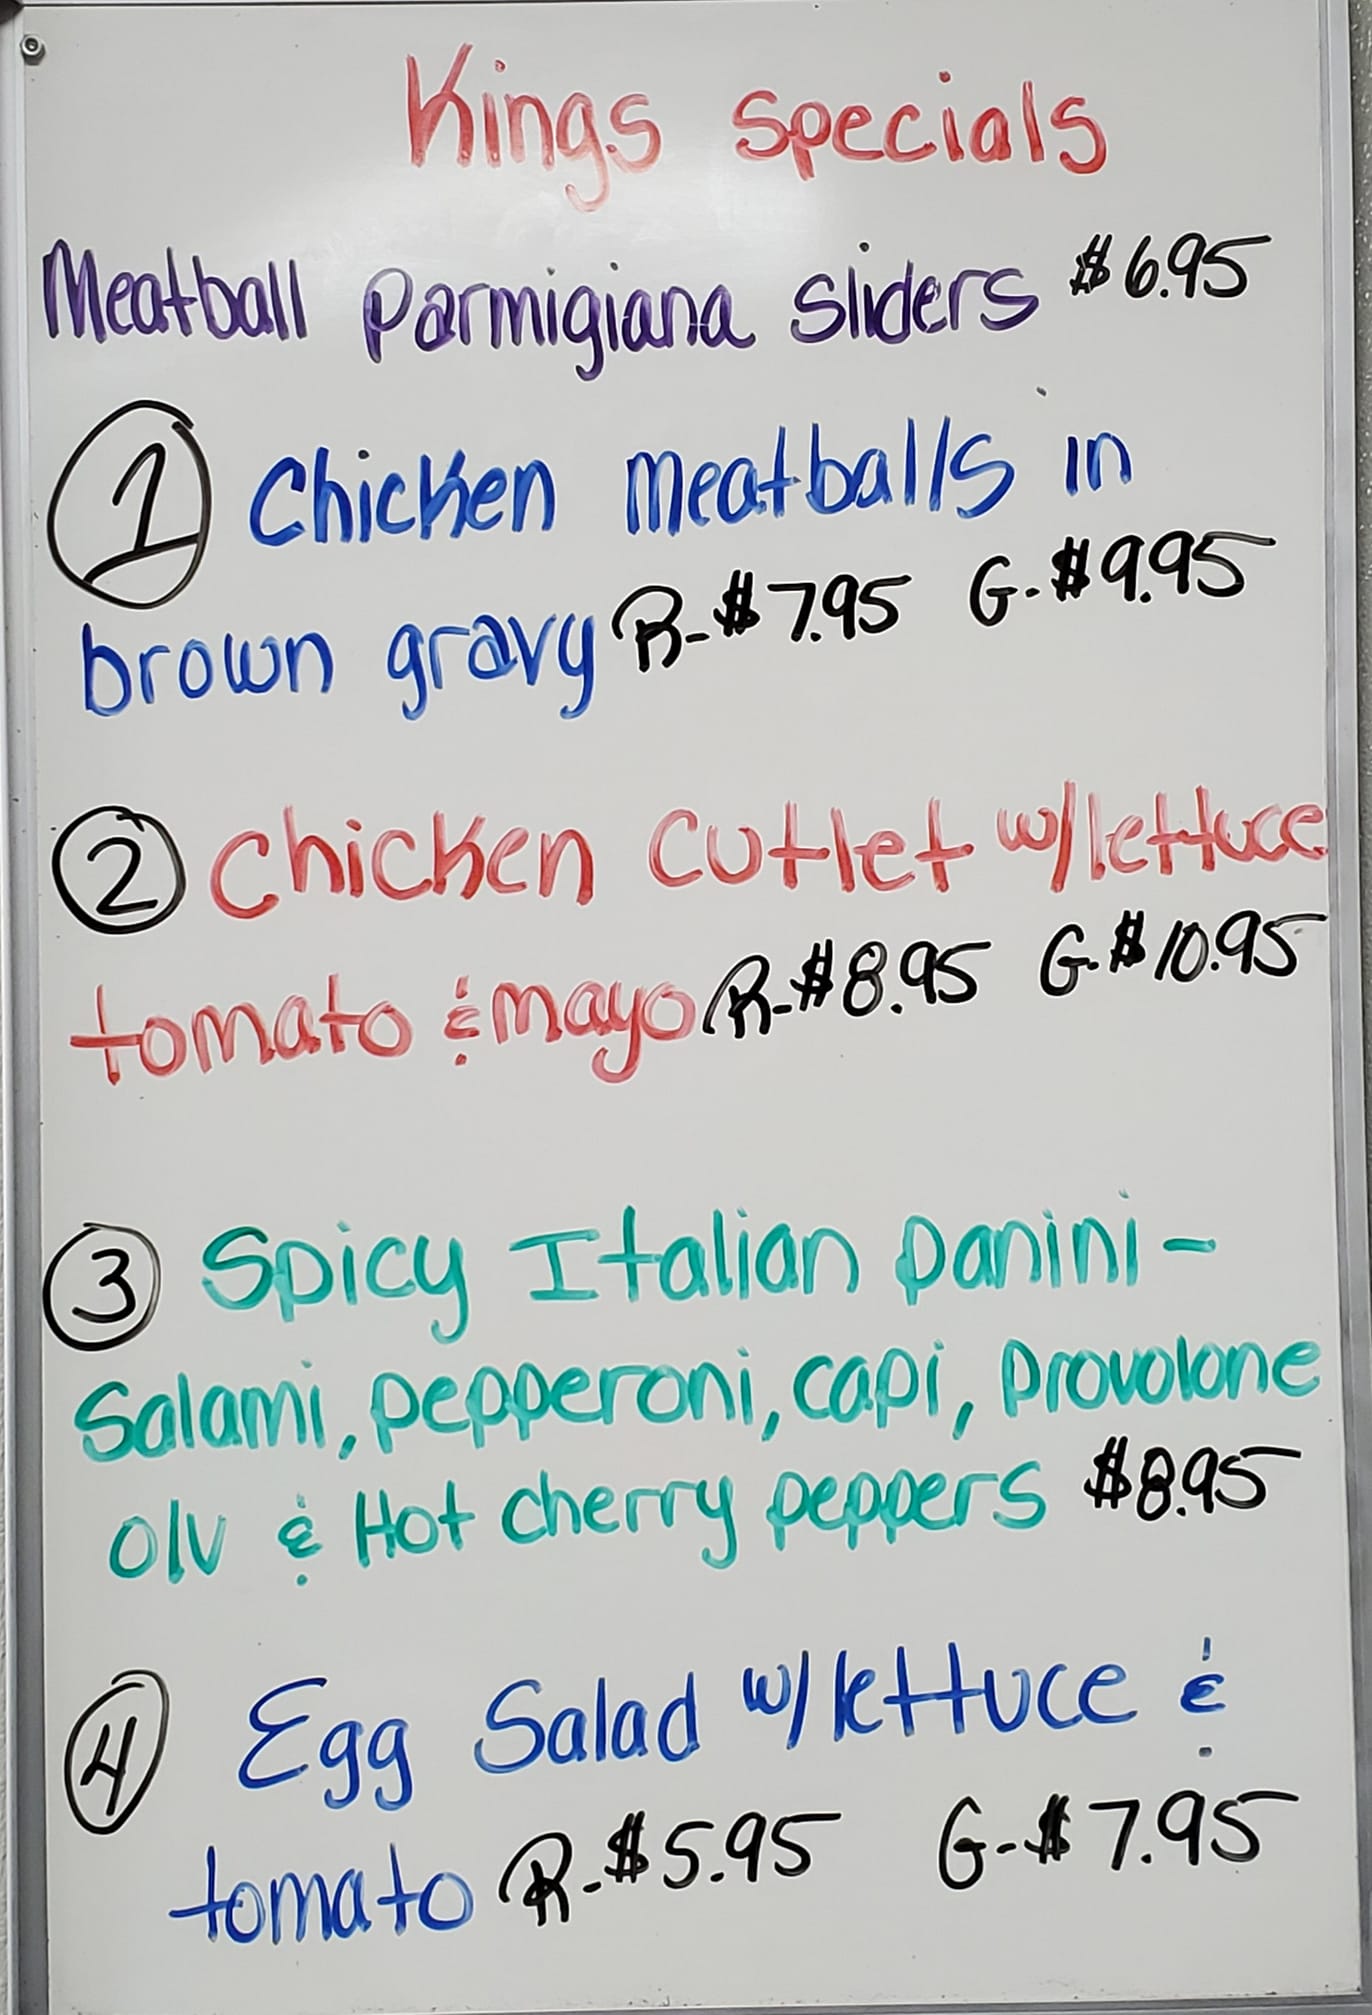 Kings Specials
Meatball Parmigiana Sliders $6.95
1 Chicken Meatballs in
brown gravy R-$7.95 G-$9.95
2 Chicken Cutlet w/lettuce
tomato & mayo R-$8.95 G-$10.95
3 Spicy Italian panini-
Salami, pepperoni, capi, provolone
olv & Hot cherry peppers $8.95
4 Egg Salad w/lettuce &
tomato R-$5.95 G-$7.95